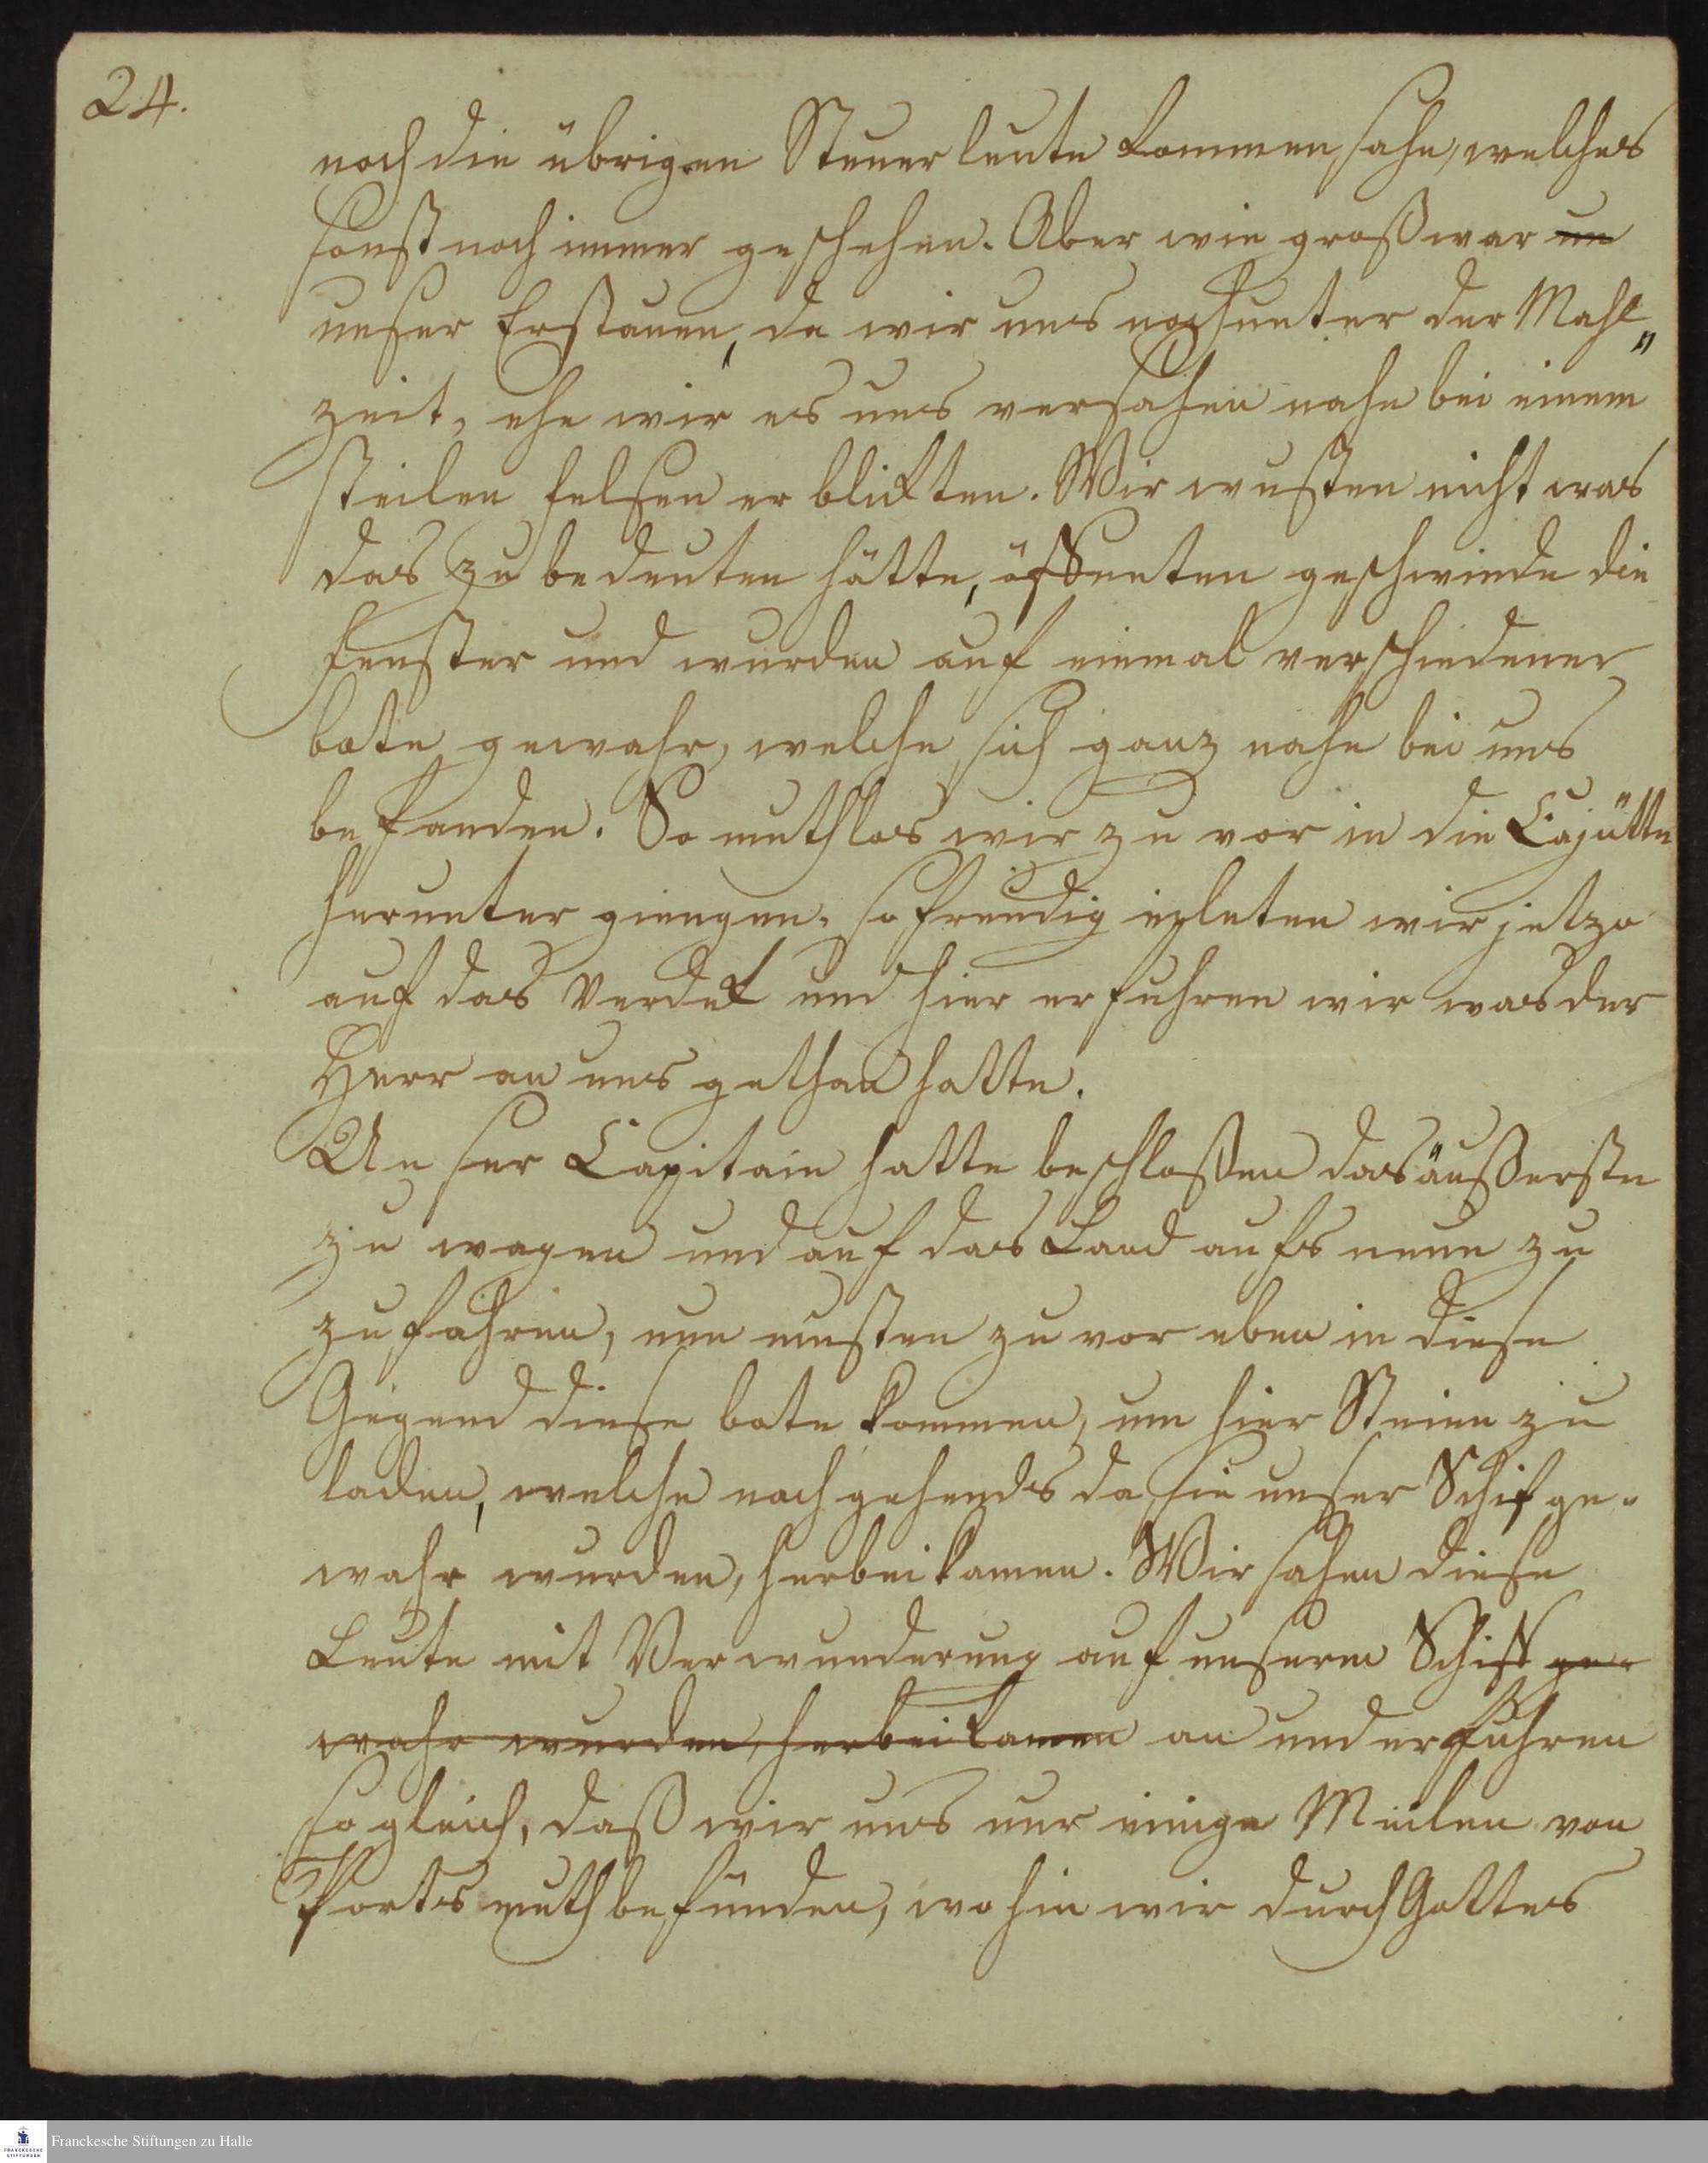 24.
noch die übrigen Steuerleute kommen sahe, welches
sonst noch immer geschehen. Aber wie groß war un
unser Erstaunen, da wir uns noch unter der Mahl„
zeit, ehe wir es uns versahen nahe bei einem
steilen felsen erblikten. Wir wusten nicht was
das zu bedeuten hätte, öffneten geschwinde die
fenster und wurden auf einmal verschiedener
bote gewahr, welche sich ganz nahe bei uns
befanden. So muthlos wir zu vor in die Cajütte
herunter giengen. so freudig eyleten wir jetzo
auf das Verdek und hier erfuhren wir was der
Herr an uns gethan hatte.
Unser Capitain hatte beschloßen das äußerste
zu wagen und auf das Land aufs neue zu
zufahren, nun musten zu vor eben in diese
Gegend diese bote kommen, um hier Steine zu
laden, welche nach gehends da sie unser Schif ge-
wahr wurden, herbei kamen. Wir sahen diese
Leute mit Verwunderung auf unserm Schiff ge-
wahr wurden, herbei kamen an und erfuhren
so gleich, daß wir uns nur einige Meilen von
Portsmuth befünden, wohin wir durch Gottes
Franckesche Stiftungen zu Halle